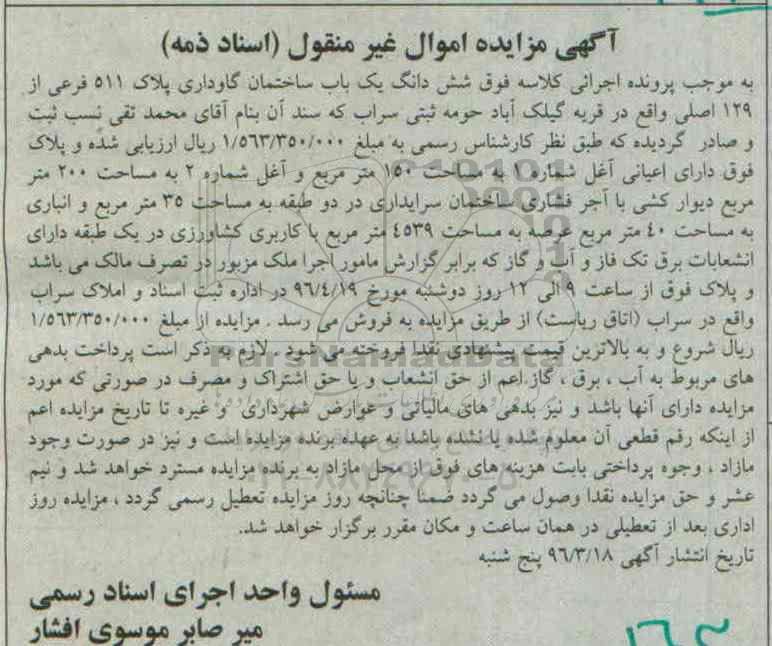 آگهی مزایده اموال غیر منقول (اسناد ذمه)
به موجب پرونده اجرائی کلاسه فوق شش دانگ یک باب ساختمان گاوداری پلاک ٥١١ فرعی از
١٢٩ اصلی واقع در قریه گیلک آباد حومه ثبتی سراب که سند آن بنام آقای محمد تقی نسب ثبت
و صادر گردیده که طبق نظر کارشناس رسمی به مبلغ ١/٥٦٣/٣٥٠/٠٠٠ ریال ارزیابی شده و پلاک
فوق دارای اعیانی آغل شماره ١ به مساحت ١٥٠ متر مربع و آغل شماره ٢ به مساحت ٢٠٠ متر
مربع دیوار کشی با آجر فشاری ساختمان سرایداری در دو طبقه به مساحت ٣٥ متر مربع و انباری
به مساحت ٤٠ متر مربع عرصه به مساحت ٤٥٣٩ متر مربع با کاربری کشاورزی در یک طبقه دارای
انشعابات برق تک فاز و آب و گاز که برابر گزارش مامور اجرا ملک مزبور در تصرف مالک می باشد
و پلاک فوق از ساعت ٩ الی ١٢ روز دوشنبه مورخ ٩٦/٤/١٩ در اداره ثبت اسناد و املاک سراب
واقع در سراب (اتاق ریاست) از طریق مزایده به فروش می رسد . مزایده از مبلغ ١/٥٦٣/٣٥٠/٠٠٠
ریال شروع و به بالاترین قیمت پیشنهادی نقدا فروخته می شود . لازم به ذکر است پرداخت بدهی
های مربوط به آب ، برق ، گاز اعم از حق انشعاب و یا حق اشتراک و مصرف در صورتی که مورد
مزایده دارای آنها باشد و نیز بدهی های مالیاتی و عوارض شهرداری و غیره تا تاریخ مزایده اعم
از اینکه رقم قطعی آن معلوم شده یا نشده باشد به عهده برنده مزایده است و نیز در صورت وجود
مازاد ، وجوه پرداختی بابت هزینه های فوق از محل مازاد به برنده مزایده مسترد خواهد شد و نیم
عشر و حق مزایده نقدا وصول می گردد ضمنا چنانچه روز مزایده تعطیل رسمی گردد ، مزایده روز
اداری بعد از تعطیلی در همان ساعت و مکان مقرر برگزار خواهد شد.
تاریخ انتشار آگهی ٩٦/٣/١٨ پنج شنبه
مسئول واحد اجرای اسناد رسمی
میر صابر موسوی افشار
ParsNamadData